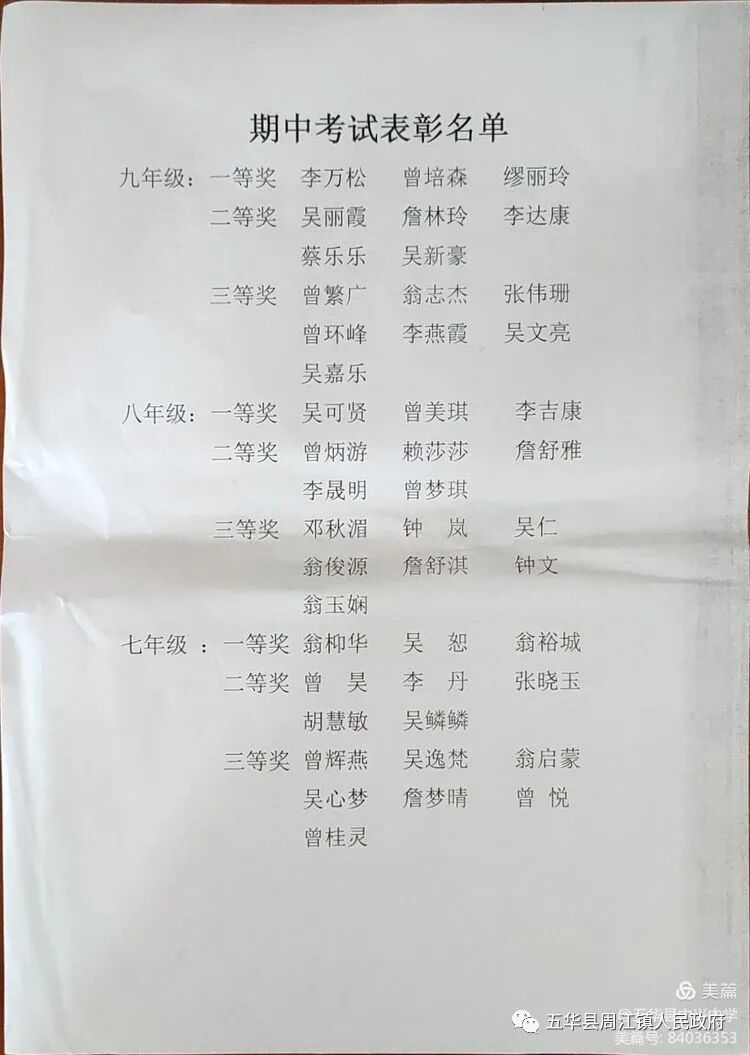 期中考试表彰名单
九年级：一等奖 李万松 曾培森 缪丽玲
二等奖 吴丽霞 詹林玲 李达康
蔡乐乐 吴新豪
三等奖 曾繁广 翁志杰 张伟珊
曾环峰 李燕霞 吴文亮
吴嘉乐
八年级：一等奖 吴可贤 曾美琪 李吉康
二等奖 曾炳游 赖莎莎 詹舒雅
李晟明 曾梦琪
三等奖 邓秋湄 钟 岚 吴仁
翁俊源 詹舒淇 钟文
翁玉娴
七年级 ：一等奖 翁柳华 吴 恕 翁裕城
二等奖 曾 昊 李 丹 张晓玉
胡慧敏 吴鳞鳞
三等奖 曾辉燕 吴逸梵 翁启蒙
吴心梦 詹梦晴 曾 悦
曾桂灵
美篇
五华县周江镇人民政府
美篇号: 84036353